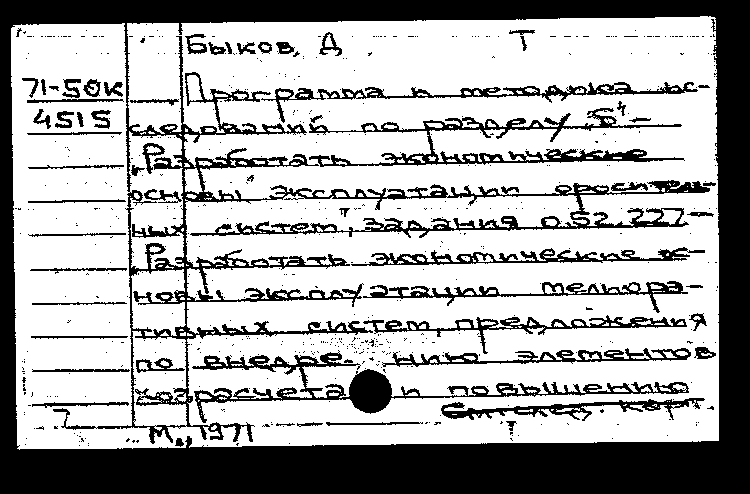 Быков, Д Т
71-50к Программа и методика ис-
4515 следований по разделу „Б“ -
„Разработать экономические
основы эксплуатации ороситель-
ных систем", задания 0.52.227-
„Разработать экономические ос-
новы эксплуатации мелиора-
тивных систем, предложения
по внедре- нию элементов
хозрасчета и повышению
См. след. карт.
7 М., 1971